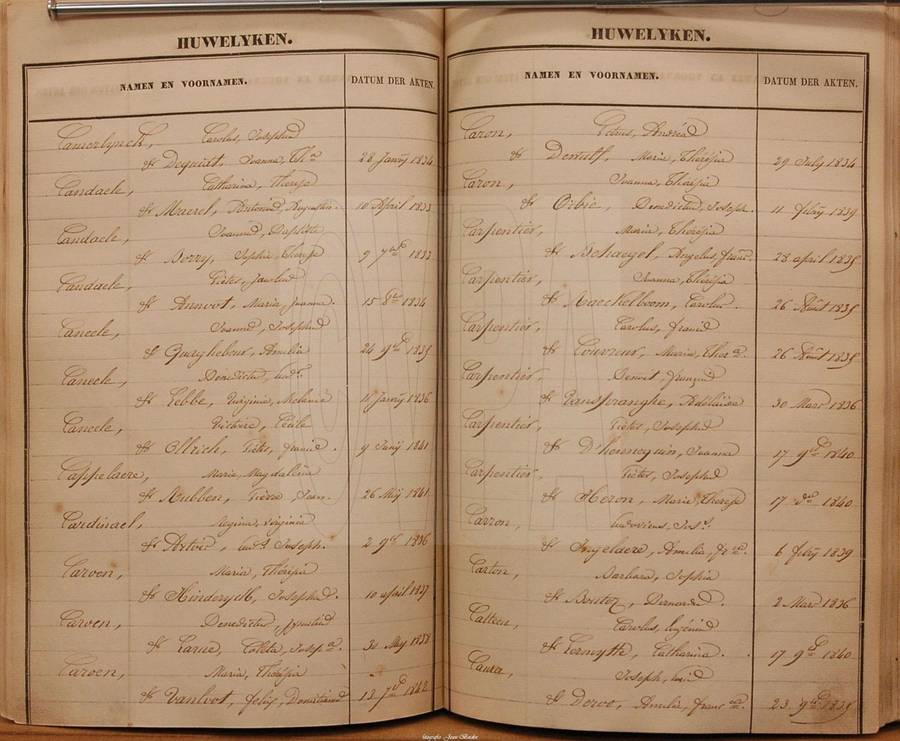 HUWELYKEN.
NAMEN EN VOORNAMEN. DATUM DER AKTEN.
Camerlynck, Carolus, Josephus
& Dequidt, Joanna, Tha 28 Janry 1834
Candaele, Catharina, Therese
& Maerel, Antonius, Augustin. 10 April 1833
Candaele, Joannes, Baptiste
& Borry, Sophia, Therese 9 7bre 1833
Candaele, Pieter, Jacobus
& Annoot, Maria, Joanna. 15 8bre 1834
Caneele, Joannes, Josephus
& Queghebeur, Amelia 24 9bre 1835
Caneele, Benedictus, Luds.
& Lebbe, Virginia, Melania 1836
Caneele, Victoire, Cécile
& Ollrich, Pieter, Francis. 9 Junij 1841
Cappelaere, Maria Magdalena
& Rubben, Pierre, Jean. 26 Mij 1841
Cardinael, Regina, Virginia
& Joseph. 2 9bre 1836
Carven, Maria, Thérésia
& Josephus. 10 april 1837
Carven, Benedictus,
& Larue, Coleta, Josepa. 31 Mij 1838
Carven, Maria, Thérésia
& Vanloot, felix, Donatianus 13 7bre 1842
HUWELYKEN.
NAMEN EN VOORNAMEN. DATUM DER AKTEN.
Caron, Petrus, Andréas
& Dewulf, Marie, Thérésia 29 July 1834
Caron, Joanna, Thérésia
& Orbie, Benedictus, Joseph. 11 febry 1839
Carpentier, Maria, Thérésia
& Behaegel, Angelus, franc. 28 april 1835
Carpentier, Joanna, Thérésia
& Kaeckelboom, Carolus. 26 Août 1835
Carpentier, Carolus, francis
& Couvreur, Maria, There. 26 Août 1835
Carpentier, Benoit, françois
& Vanspranghe, Adelaïde 30 Mars 1836
Carpentier, Pieter, Josephus
& D'hennequin, Joanna 17 9bre 1840
Carpentier, Pieter, Josephus
& Heron, Marie, Therese 17 1840
Carron, Ludovicus, Josh.
& Ingelaere, Amelia, 6 febry 1839
Carton, Barbara, Sophia
& Boutez, Bernardus. 2 Mars 1836
Catteeu, Carolus, Eugénius
& Vermytte, Catharina. 17 9bre 1840
Joseph,
& Amelia, franc 23 9bre 1835